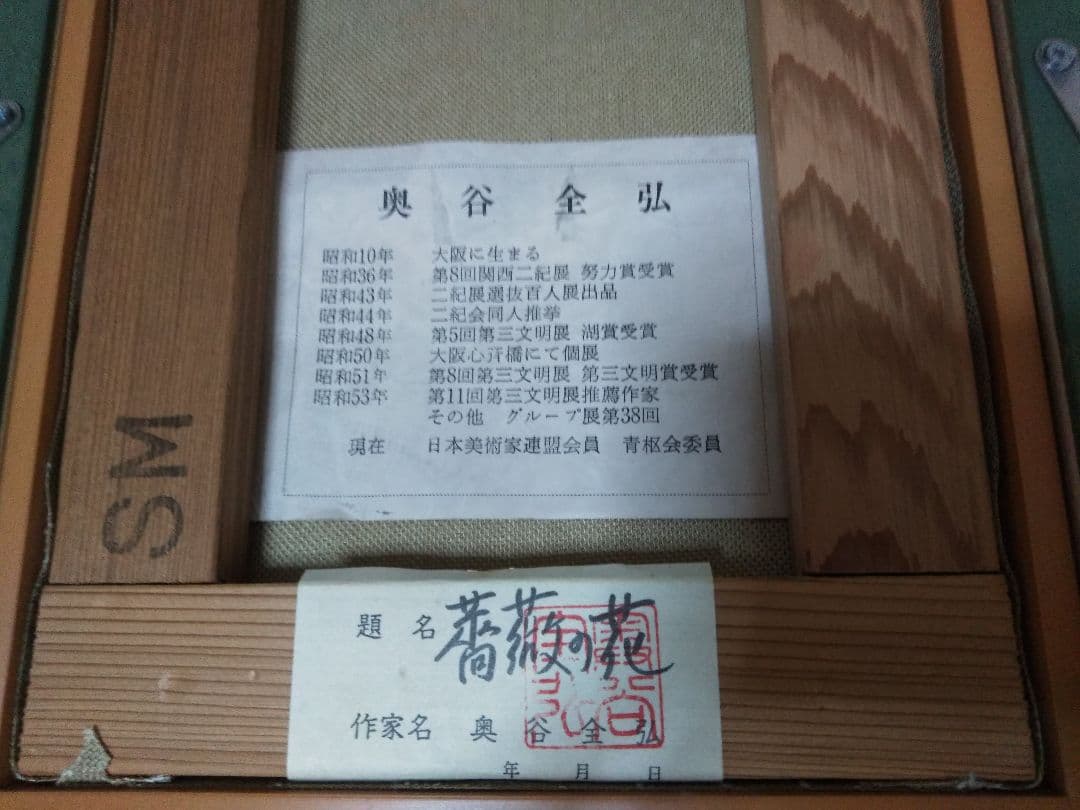 奥谷全弘
昭和10年 大阪に生まる
昭和36年 第8回関西二紀展 努力賞受賞
昭和43年 二紀展選抜百人展出品
昭和44年 二紀会同人推挙
昭和48年 第5回第三文明展 湖賞受賞
昭和50年 大阪心斉橋にて個展
昭和51年 第8回第三文明展 第三文明賞受賞
昭和53年 第11回第三文明展推薦作家
その他 グループ展第38回
現在 日本美術家連盟会員 青枢会委員
SM
題名 薔薇の苑
作家名 奥谷全弘
年 月 日